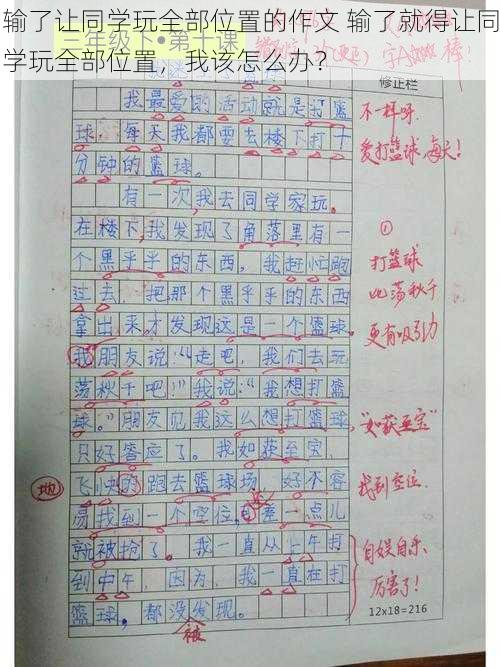 输了让同学玩全部位置的作文 输了就得让同
学玩全部位置，我该怎么办?
三年级下·第十课
修正栏
我最爱的活动就是打篮
球，每天我都要去楼下打十
分钟的篮球。
有一次我去同学家玩。
在楼下，我发现了角落里有一
个黑乎乎的东西，我赶忙跑
过去，把那个黑乎乎的东西
拿出来才发现这是一个篮球。
我朋友说：“走吧，我们去玩
荡秋千吧！”我说：“我想打篮
球。”朋友见我这么想打篮球，
只好答应了。我如获至宝，
飞快的跑去篮球场，好不容
易找到一个空位，差一点儿
就被抢了。我一直从上午打
到中午，因为，我一直在打
篮球，都没发现。
不一样呀.
爱打篮球,每天!
①
打篮球
比荡秋千
更有吸引力
“如获至宝”
地
找到空位.
自娱自乐、
厉害了!
被
12x18=216